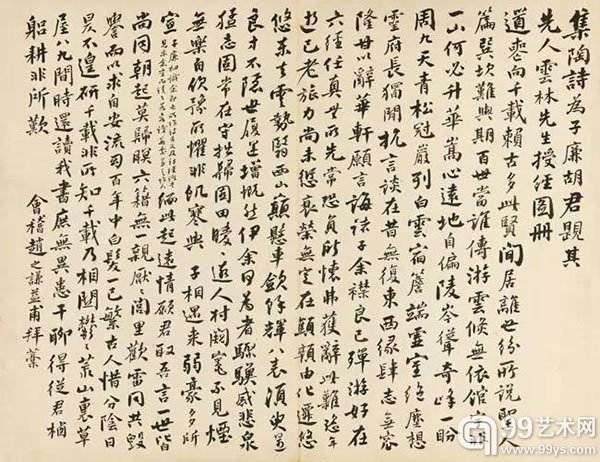 集陶詩為子廉胡君題其
先人雲林先生授經圖冊
道喪向千載賴古多此賢閒居離世紛所說聖人
篇巽坎難與期百世當誰傳游雲倐無依館宇非
一山何必升華嵩心遠地自偏陵岑聳奇峰一盼
周九天青松冠巖列白雲宿簷端靈室絕塵想
靈府長獨閒抗言談在昔無復東西緣肆志無窊
隆毋以辭華軒願言誨諸子余襟良已殫游好在
六經任真無所先常恐負所懷弗獲辭此難迄年
逝已老旅力尚未愆衰榮無定在顛頹由化遷悠
悠東去雲翳翳西山顛懸車斂餘輝八表須臾還
良才不隱世履運增慨然伊余何為者驟驥感悲泉
猛志固常在守拙歸園田曖曖遠人村闃寂不見煙
無樂自欣豫所懼非飢寒與子相遇來弱豪多所
宣緬此起遠情願君取吾言一世皆
尚同朝起莫歸眠六籍無一親厭厭閭里歡雷同共毀
譽而以求自安流幻百年中白髮一已繁古人惜分陰日
昃不遑研千載非所知千載乃相關鬱鬱荒山裏草
屋八九間時還讀我書庶無異患干聊得從君栖
躬耕非所歎
會稽趙之謙益甫拜藁
99艺术网
www.99ys.com